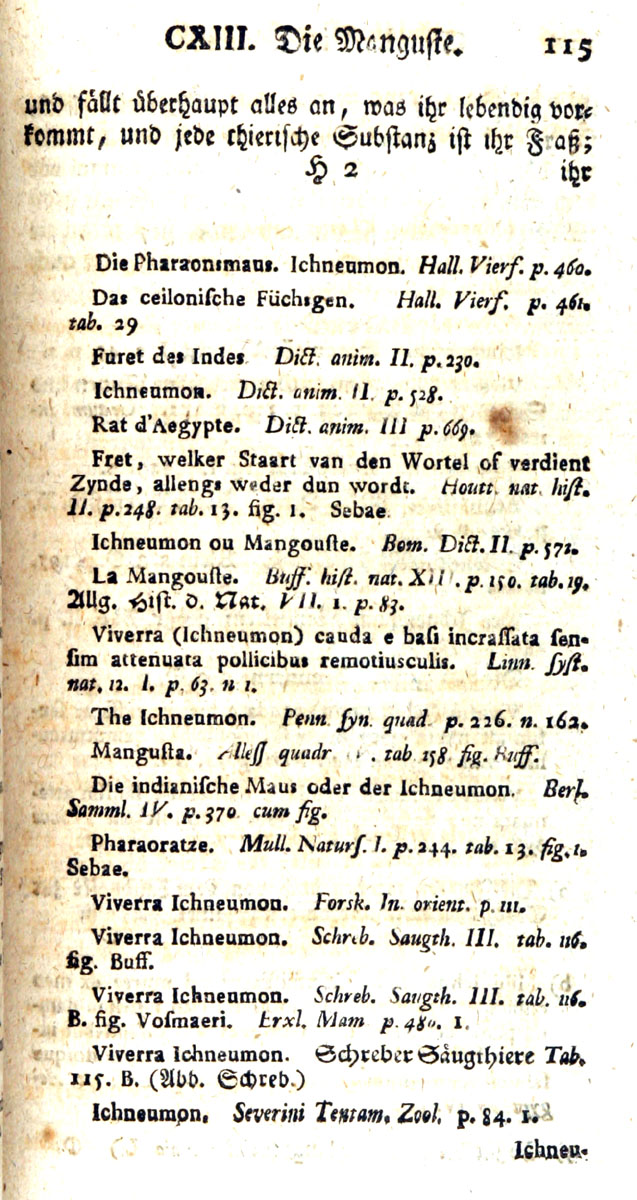 CXIII. Die Manguste. 115
und fällt überhaupt alles an, was ihr lebendig vor⸗
kommt, und jede thierische Substanz ist ihr Fraß;
H 2 ihr
Die Pharaonsmaus. Ichneumon. Hall. Vierf. p. 460.
Das ceilonische Füchsgen. Hall. Vierf. p. 461.
tab. 29
Furet des Indes Dict. anim. II. p. 230.
Ichneumon. Dict. anim. II. p. 528.
Rat d'Aegypte. Dict. anim. III p. 669.
Fret, welker Staart van den Wortel of verdient
Zynde, allengs weder dun wordt. Houtt. nat. hist.
II. p. 248. tab. 13. fig. 1. Sebae.
Ichneumon ou Mangouste. Bom. Dict. II. p. 572.
La Mangouste. Buff. hist. nat. XIII. p. 150. tab. 19.
Allg. Hist. d. Nat. VII. 1. p. 83.
Viverra (Ichneumon) cauda e basi incrassata sen-
sim attenuata pollicibus remotiusculis. Linn. syst.
nat. 12. I. p. 63. n 1.
The Ichneumon. Penn. syn. quad. p. 226. n. 162.
Mangusta. quadr tab 158 fig. Buff.
Die indianische Maus oder der Ichneumon. Berl.
Samml. IV. p. 370 cum fig.
Pharaoratze. Mull. Naturs. I. p. 244. tab. 13. fig. 1.
Sebae.
Viverra Ichneumon. Forsk. In. orient. p. III.
Viverra Ichneumon. Schreb. Saugth. III. tab. 116.
fig. Buff.
Viverra Ichneumon. Schreb. Saugth. III. tab. 116.
B. fig. Vosmaeri. Erxl. Mam p. 480. 1.
Viverra Ichneumon. Schreber Säugthiere Tab.
115. B. (Abb. Schreb.)
Ichneumon. Severini Tentam. Zool. p. 84. 1.
Ichneu-